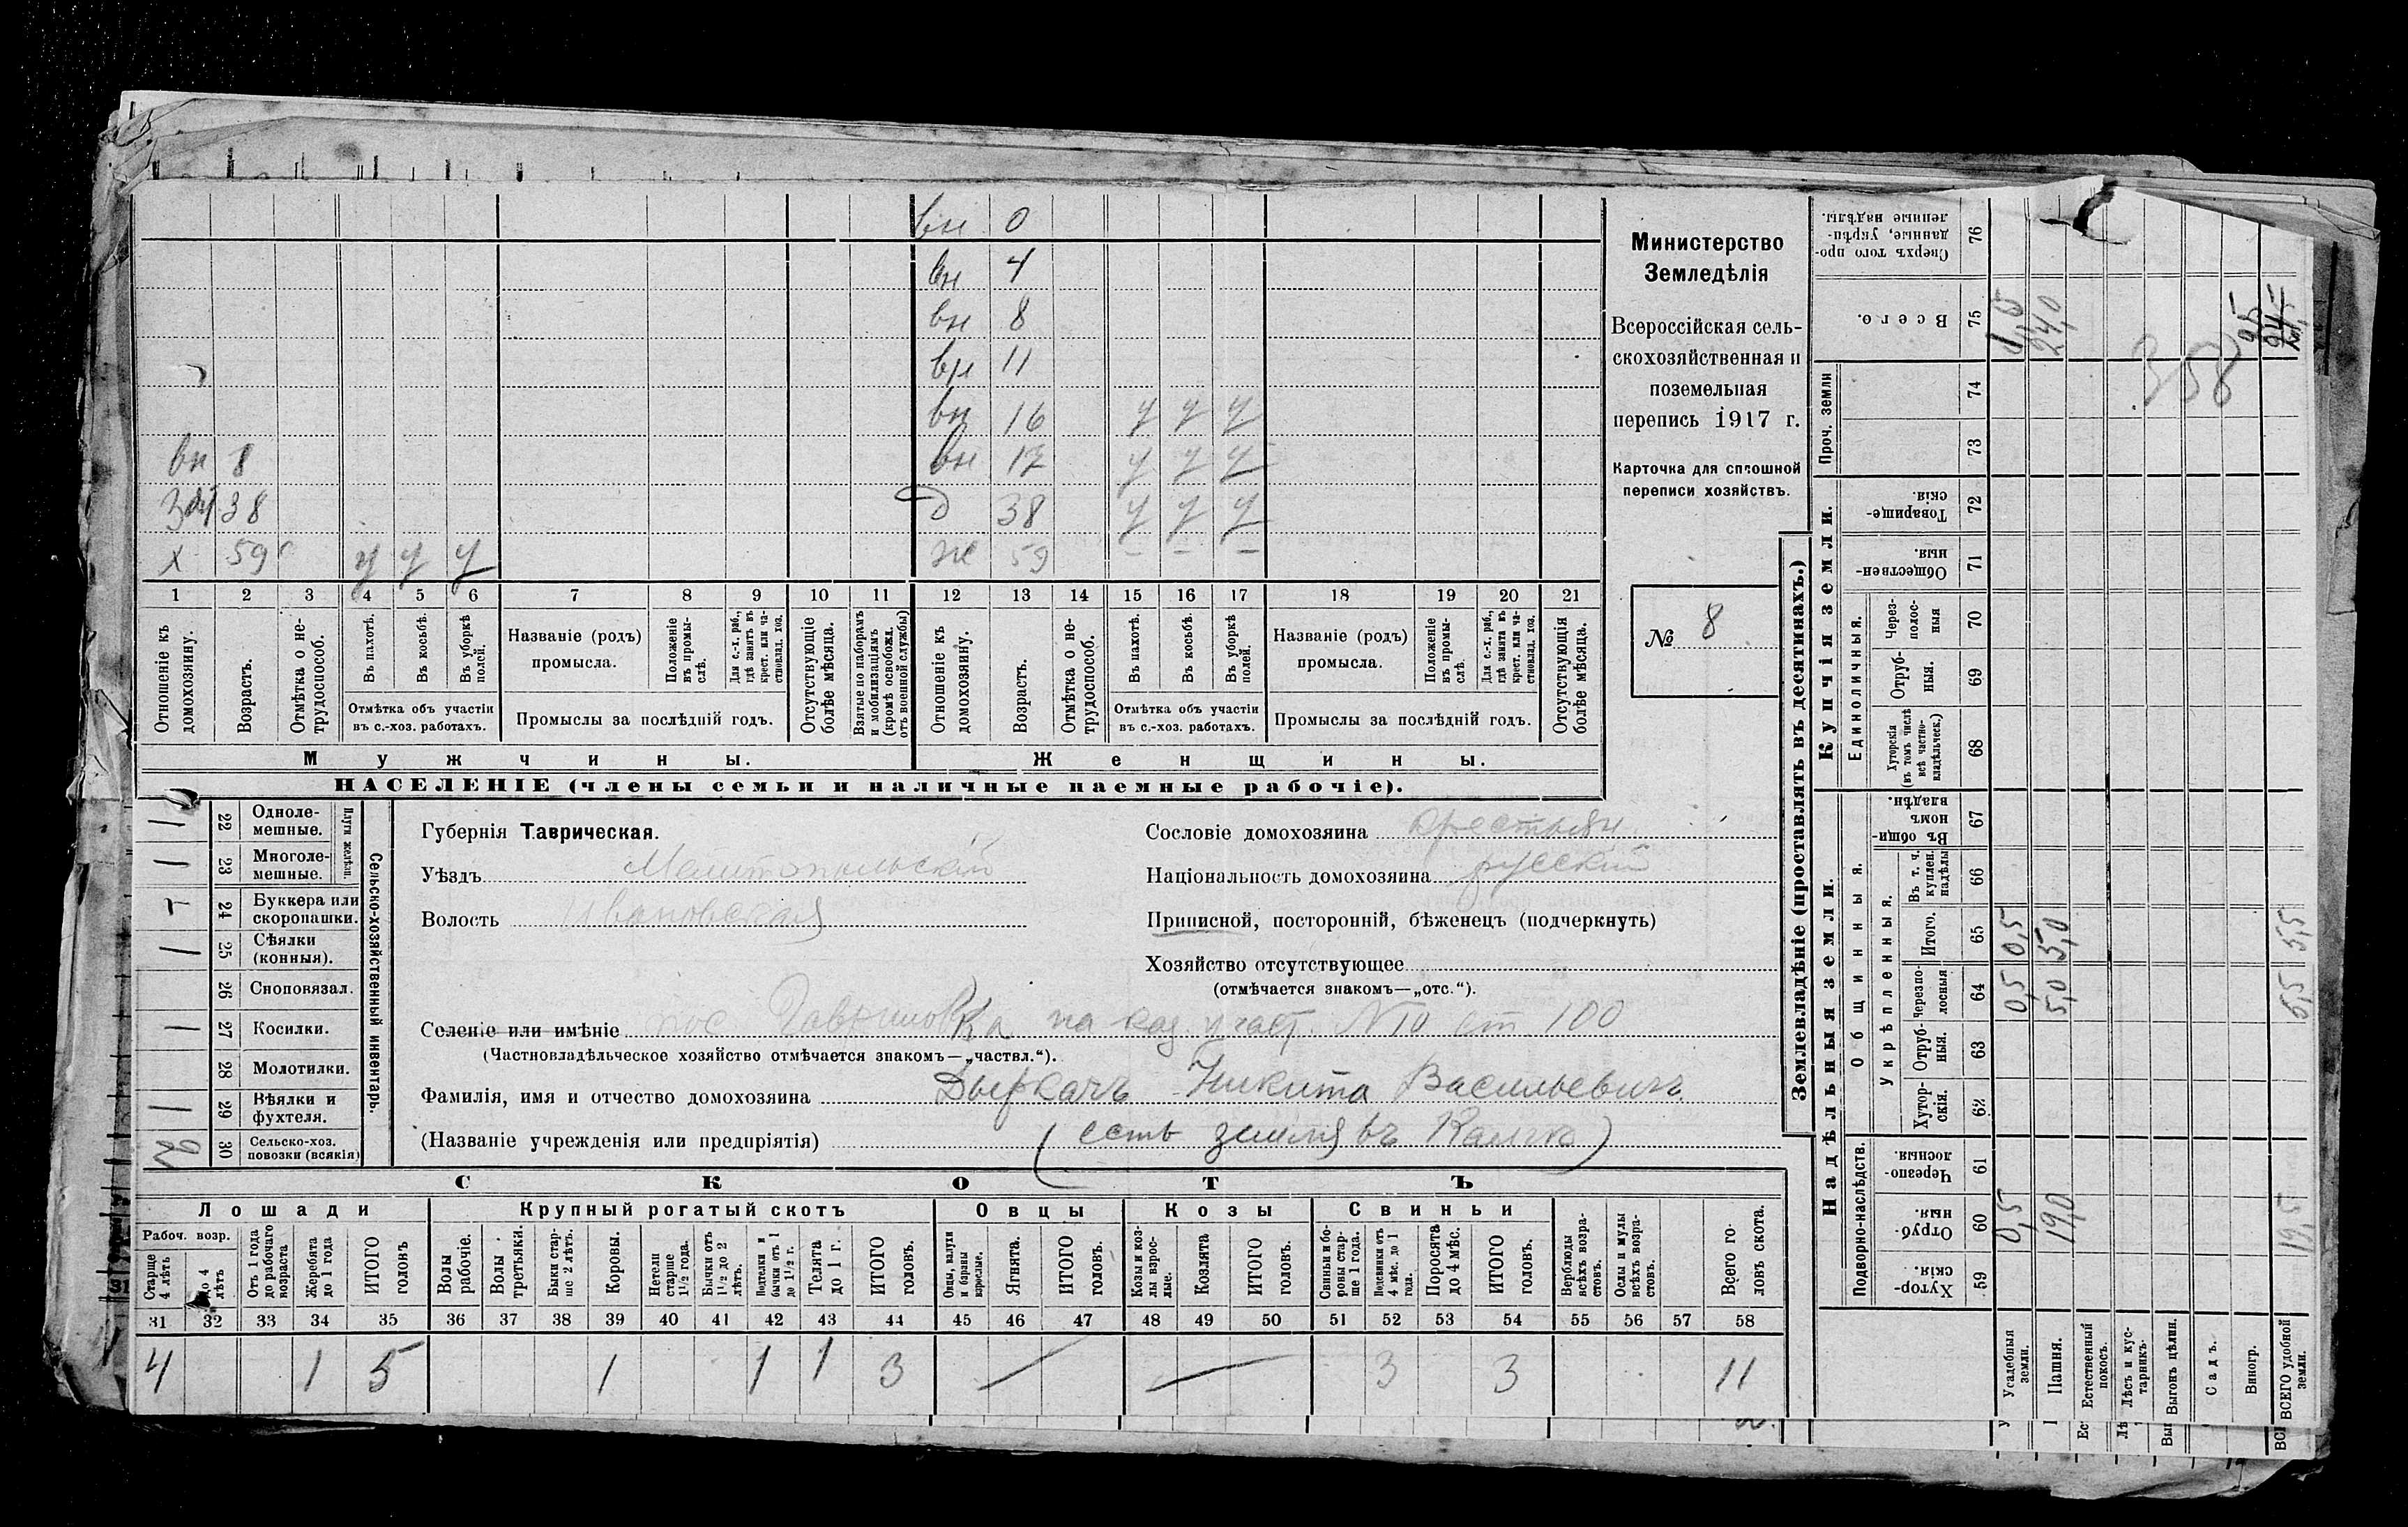 вн 0
вн 4
вн 8
вн 11
вн 16 у у у
вн 8 вн 17 у у у
38 д 38 у у у
х 59 у у у ж 59 - - -
1 2 3 4 5 6 7 8 9 10 11 12 13 14 15 16 17 18 19 20 21
Отношеніе къ домохозяину.
Возрастъ.
Отмѣтка о не-трудоспособ.
Въ пахотѣ.
Въ косьбѣ.
Въ уборкѣ полей.
Названіе (родъ) промысла.
Положеніе въ промы-слѣ.
Для с.-х. раб., гдѣ занятъ въ крест. или ча-стновлад. хоз.
Отсутствующіе болѣе мѣсяца.
Взятые по наборамъ и мобилизаціямъ (кромѣ освобожд. отъ военной службы)
Отмѣтка объ участіи въ с.-хоз. работахъ.
Промыслы за послѣдній годъ.
Отношеніе къ домохозяину.
Возрастъ.
Отмѣтка о не-трудоспособ.
Въ пахотѣ.
Въ косьбѣ.
Въ уборкѣ полей.
Названіе (родъ) промысла.
Положеніе въ промы-слѣ.
Для с.-х. раб., гдѣ занята въ крест. или ча-стновлад. хоз.
Отсутствующія болѣе мѣсяца.
Отмѣтка объ участіи въ с.-хоз. работахъ.
Промыслы за послѣдній годъ.
Мужчины. Женщины.
НАСЕЛЕНІЕ (члены семьи и наличные наемные рабочіе).
Министерство
Земледѣлія
Всероссійская сель-
скохозяйственная и
поземельная
перепись 1917 г.
Карточка для сплошной
переписи хозяйствъ.
№ 8
Сельско-хозяйственный инвентарь.
Плуги желѣзн.
1 22 Одноле-мешные.
1 23 Многоле-мешные.
24 Буккера или скоропашки.
1 25 Сѣялки (конныя).
26 Сноповязал.
1 27 Косилки.
28 Молотилки.
1 29 Вѣялки и фухтеля.
2 30 Сельско-хоз. повозки (всякія)
Губернія Таврическая.
Уѣздъ Мелитопольскій
Волость Ивановская
Сословіе домохозяина крестьян
Національность домохозяина русскій
Приписной, посторонній, бѣженецъ (подчеркнуть)
Хозяйство отсутствующее
(отмѣчается знакомъ—„отс.“).
Селеніе или имѣніе пос Гавриловка на каз. участ. № от 100
(Частновладѣльческое хозяйство отмѣчается знакомъ—„частвл.“).
Фамилія, имя и отчество домохозяина Дыркачъ Никита Васильевичъ
(Названіе учрежденія или предпріятія) (есть земля въ )
СКОТЪ
Лошади Крупный рогатый скотъ Овцы Козы Свиньи
Рабоч. возр.
Старше 4 лѣтъ
до 4 лѣтъ
Отъ 1 года до рабочаго возраста
Жеребята до 1 года
ИТОГО головъ
Волы рабочіе.
Волы третьяки.
Быки стар-ше 2 лѣтъ.
Коровы.
Нетели старше 1½ года.
Бычки отъ 1½ до 2 лѣтъ.
Подтелки и бычки отъ 1 до 1½ г.
Телята до 1 г.
ИТОГО головъ.
Овцы, валухи и бараны взрослые.
Ягнята.
ИТОГО головъ.
Козы и коз-лы взрос-лые.
Козлята
ИТОГО головъ.
Свиньи и бо-ровы стар-ше 1 года.
Подсвинки отъ 4 мѣс. до 1 года.
Поросята до 4 мѣс.
ИТОГО головъ.
Верблюды всѣхъ возра-стовъ.
Ослы и мулы всѣхъ возра-стовъ.
Всего го-ловъ скота.
31 32 33 34 35 36 37 38 39 40 41 42 43 44 45 46 47 48 49 50 51 52 53 54 55 56 57 58
4 1 5 1 1 1 3 3 3 11
Землевладѣніе (проставлять въ десятинахъ.)
Надѣльныя земли. Купчія земли.
Подворно-наслѣдств.
Общинныя.
Укрѣпленныя.
Единоличныя.
Проч. земли
Хутор-скія. 59
Отруб-ныя. 60 0,5 19,0 19,5
Черезпо-лосныя. 61
Хутор-скія. 62
Отруб-ныя. 63
Черезпо-лосныя 64 0,5 5,0 5,5
Итого. 65 0,5 5,0 5,5
Въ т. ч. куплен. надѣлы 66
Въ общин-номъ владѣн. 67
Хуторскія (въ томъ числѣ всѣ частно-владѣльческ.) 68
Отруб-ныя. 69
Через-полос-ныя 70
Обществен-ныя. 71
Товарище-скія. 72
73
74
Всего. 75 24,0
Сверхъ того про-данные, укрѣп-ленные надѣлы. 76
358
Усадебныя земли.
Пашня.
Естественный покосъ.
Лѣсъ и кус-тарникъ.
Выгонъ цѣлин.
Садъ.
Виногр.
ВСЕГО удобной земли.